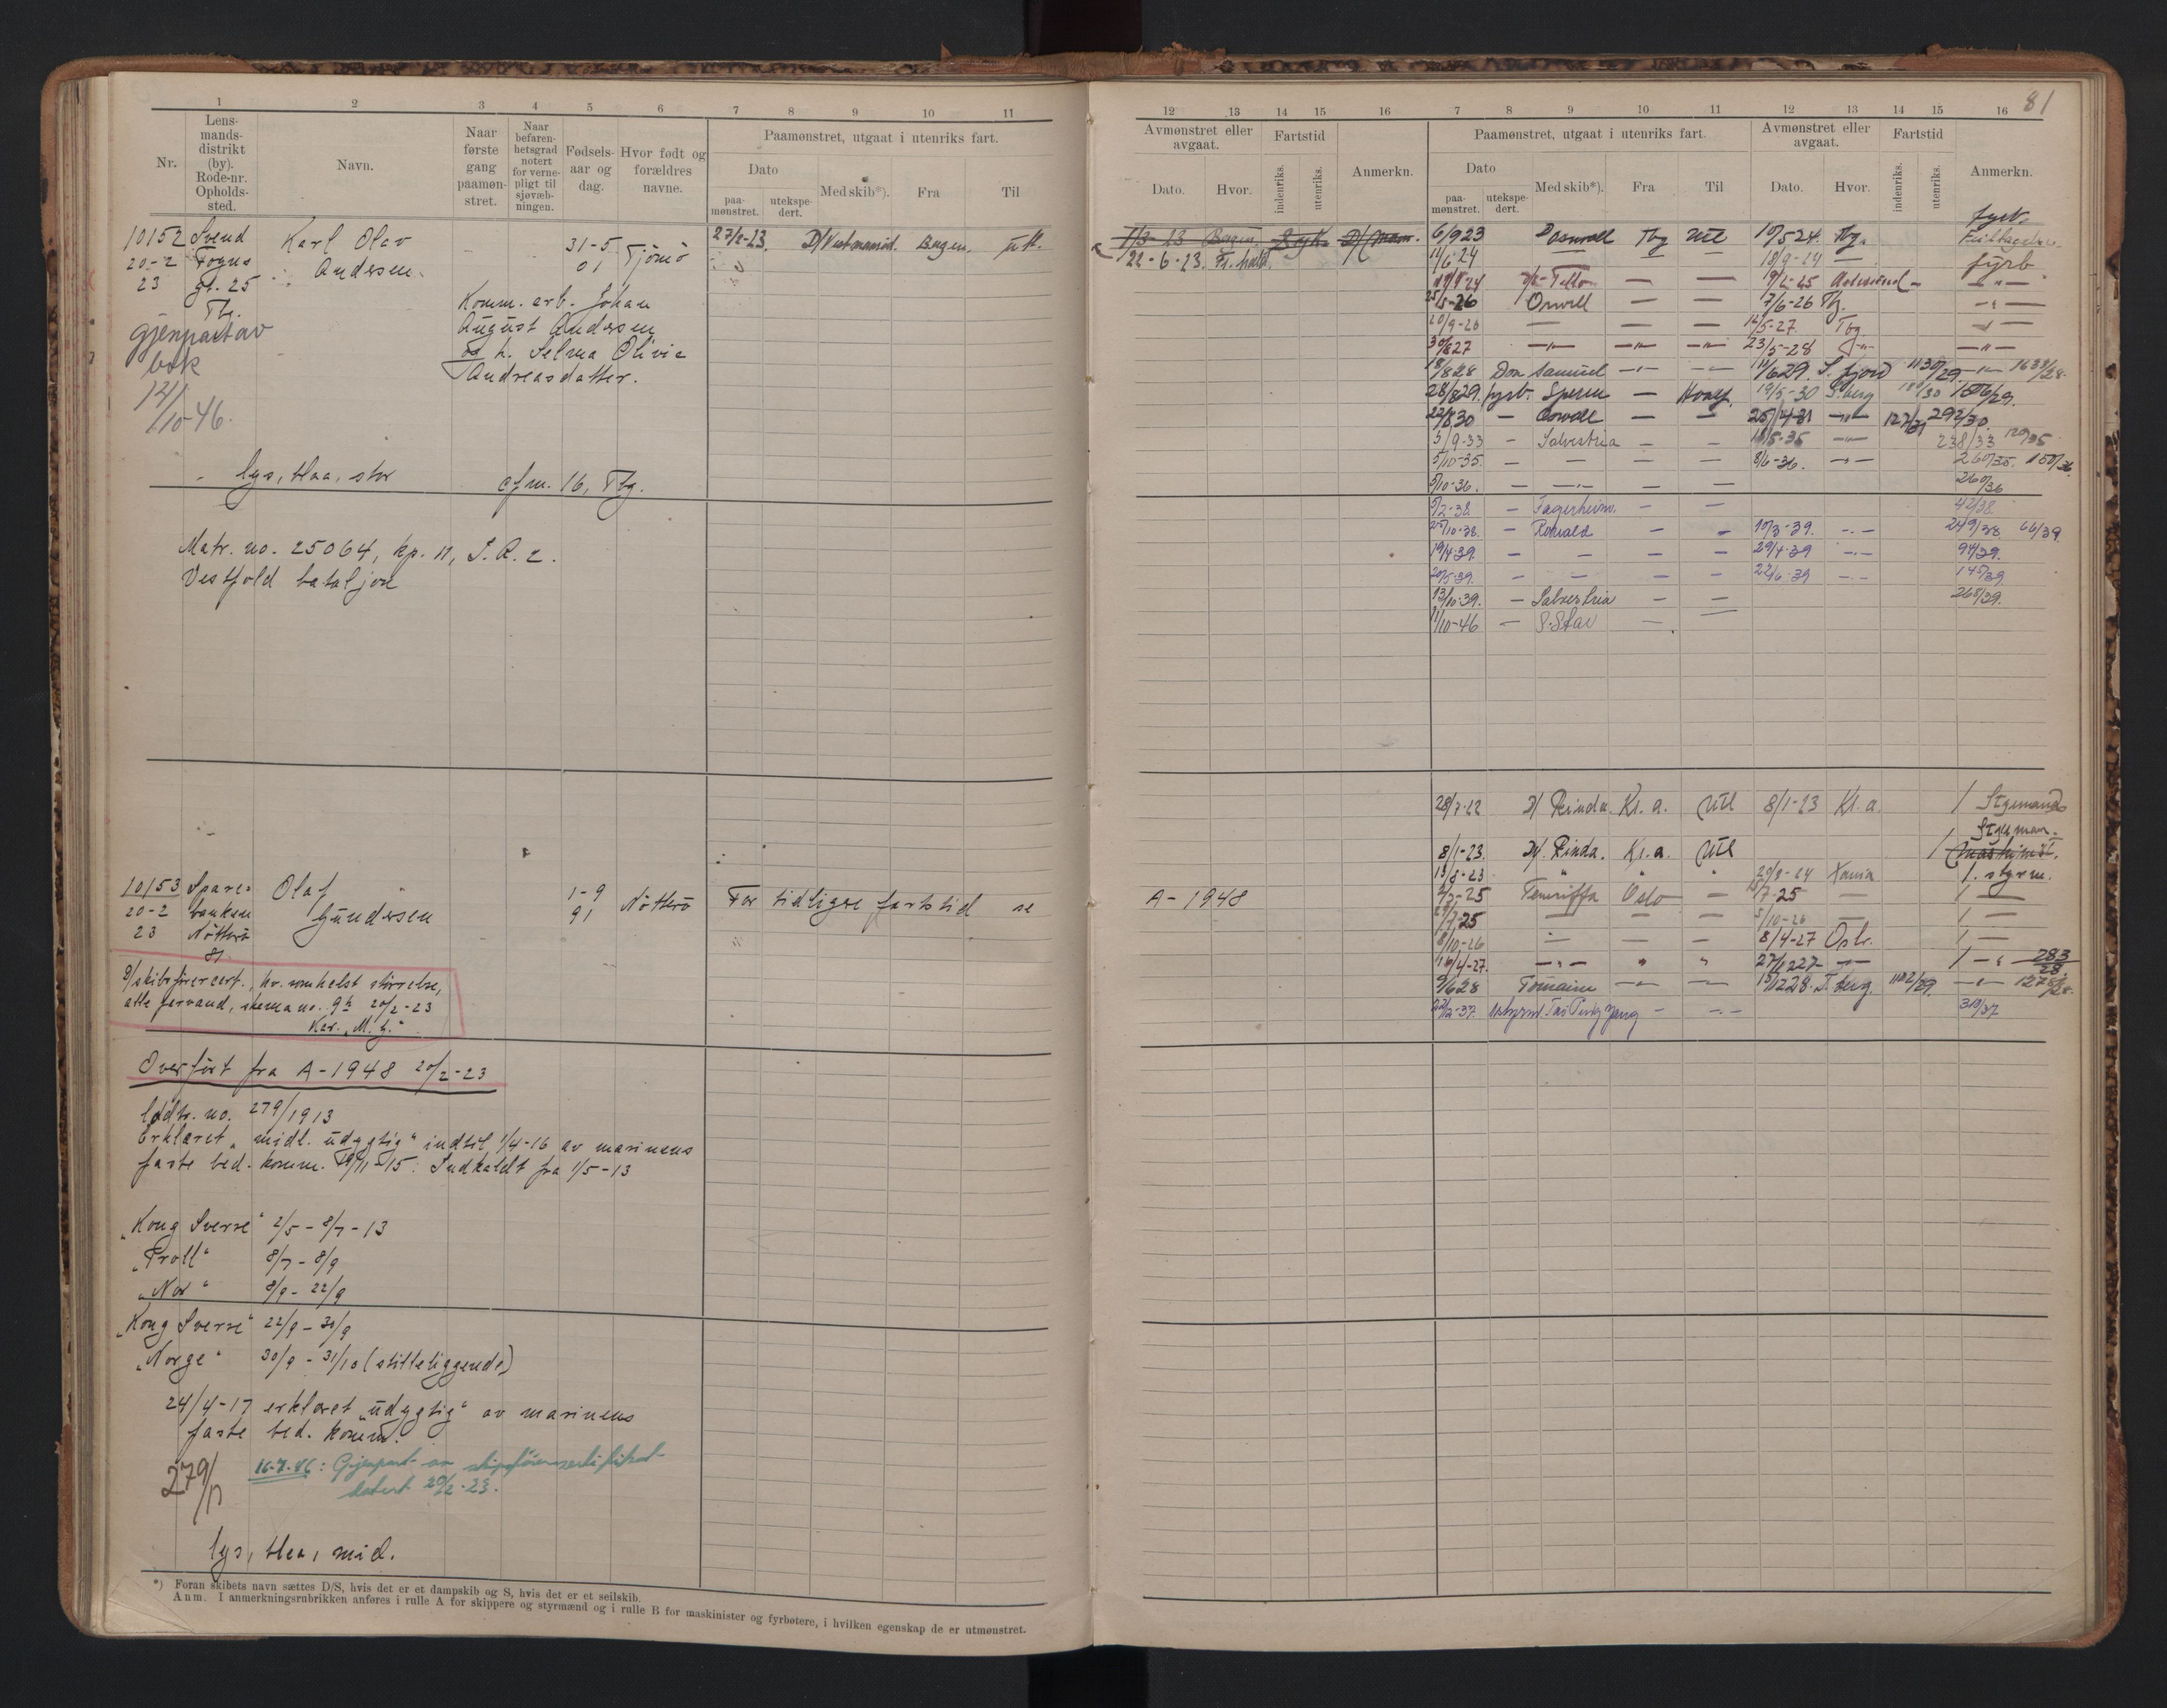 81
1 2 3 4 5 6 7 8 9 10 11
Nr.
Lens-
mands-
distrikt
(by).
Rode-nr.
Opholds-
sted.
Navn.
Naar
første
gang
paamøn-
stret.
Naar
befaren-
hetsgrad
notert
for verne-
pligt til
sjøvæb-
ningen.
Fødsels-
aar og
dag.
Hvor født og
forældres
navne.
Paamønstret, utgaat i utenriks fart.
Dato
paa-
mønstret.
utekspe-
dert.
Med skib*).
Fra
Til
10152 Svend Karl Olav 31-5 Tjømø 27/2-23. D/ Vestmanrød. Bergen. utl.
20-2 Foyns Andersen. 01
23 gt. 25
Tbg.
Komm. arb. Johan
August Andersen
og h. Selma Olivie
Andreasdatter.
gjenpart av
bok
12/
10-46.
lys, blaa, stor cfm. 16, Tbg.
Matr. no. 25064, kp. 11, I.R. 2.
Vestfold bataljon
10153 Spare- Olaf 1-9 Nøtterø For tidligere fartstid se
20-2 banken Gundersen 91
23 Nøtterø
81
S/skibsførercert., hv. somhelst størrelse,
alle farvand, skema no. 9b 20/2-23
Kar. "M. g."
Overført fra A-1948 20/2-23
Uddr. no. 279/1913
Erklæret "midl. udygtig" indtil 1/4-16 av marinens
faste bed. komm. 19/11-15. Indkaldt fra 1/5-13
"Kong Sverre" 2/5 - 8/7 - 13
"Troll" 8/7 - 8/9
"Nor" 8/9 - 22/9
"Kong Sverre" 22/9 - 30/9
"Norge" 30/9 - 31/10 (stilleliggende)
24/4-17 erklæret "udygtig" av marinens
faste bed. komm.
279/17
16.7.46: Gjenpart av skipsførersertifikat
datert 20/2-23.
lys, blaa, mid.
*) Foran skibets navn sættes D/S, hvis det er et dampskib og S, hvis det er et seilskib.
Anm. I anmerkningsrubrikken anføres i rulle A for skippere og styrmænd og i rulle B for maskinister og fyrbøtere, i hvilken egenskap de er utmønstret.
12 13 14 15 16 7 8 9 10 11 12 13 14 15 16
Avmønstret eller
avgaat.
Dato.
Hvor.
Fartstid
indenriks.
utenriks.
Anmerkn.
Paamønstret, utgaat i utenriks fart.
Dato
paa-
mønstret.
utekspe-
dert.
Med skib*).
Fra
Til
Avmønstret eller
avgaat.
Dato.
Hvor.
Fartstid
indenriks.
utenriks.
Anmerkn.
1/3-23 Bergen. 6/9 23 Tbg Utl 10/5 24. Tbg. fyrb.
22-6-23. Fr.hald. 11/6 24 — — — 18/9-24 — fyrb.
— — 19/2-25
25/5-26 Orwell — — 7/6-26 Tbg. -"-
20/9-26 — — — 12/5-27. Tbg. -"-
30/8 27 -"- -"- -"- 23/5-28 -"- -"-
18/8 28 Don Samuel -"- — 11/6 29. S. fjord 1130/29 -"- 1633/28.
28/8 29. fyrb. — Hvalf. 19/5-30 T.berg 180/30
22/8 30 — Orwell — — 25/4-31 -"- 127/31 292/30.
5/9-33 — Salvestria — — 18/5-35 -"- 238/33 120/35
5/10-35. — — — — 8/6-36. -"- 260/35. 150/36
5/10-36. — -"- — — 260/36
5/2-38 — Fagerheim. — — 42/38.
25/10-38. — Ronald — — 10/3-39. -"- 249/38 66/39.
19/4-39. — — — — 29/4-39 -"- 94/39.
20/5-39. — — — — 22/6-39 -"- 145/39
13/10-39. — Salvestria — — 268/39.
11/10-46 — —
28/7-22 D/ Kr.a. Utl 8/1-23 Kr.a. 1 Styrmand
8/1-23. D/. Rinda. Kr.a. Utl 1 Styrman.
13/8-23 " " " 20/8-24 Xania 1. styrm.
A-1948 Teneriffa Oslo — 15/7-25 — 1 —
29/7 25 — — — 5/10-26 — 1 —
8/10-26 — — — 8/4-27 Oslo. 1 —
16/4-27. -"- " " -"- 1 -"- 283/28.
9/6 28 Temaire -"- — 15/12 28. T.berg. 1102/29. -"- 1278/28.
22/2-37. — -"- 310/37